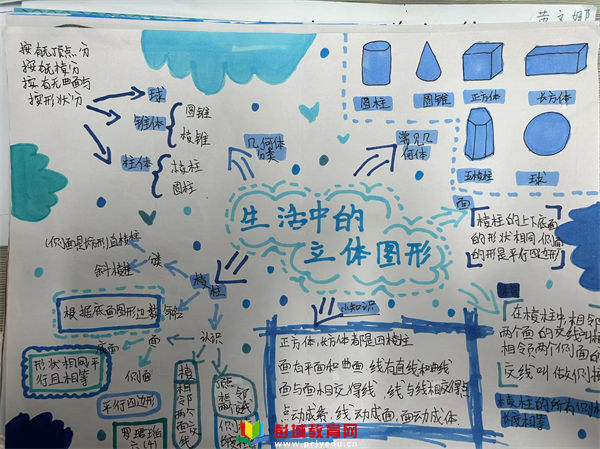 按有无顶点分
按有无棱分
按有无曲面分
按形状分
球
锥体
圆锥
棱锥
柱体
棱柱
圆柱
几何体
分类
常见几
何体
圆柱
圆锥
正方体
长方体
五棱柱
球
生活中的
立体图形
面
棱柱的上下底面
的形状相同侧面
的形是平行四边形
在棱柱中相邻
两个面的交线叫
相邻两个侧面的
交线叫做侧棱
棱柱的所有侧棱
长度相等
棱柱
斜棱柱
根据底面图形边数
面
认识
底面
形状相同平
行且相等
侧面
平行四边形
棱
相邻
两个
面
交线
顶点
小知识
正方体,长方体都是四棱柱
面有平面和曲面,线有直线和曲线
面与面相交得线,线与线相交得点
点动成线,线动成面,面动成体.
六(4)
彭城教育网
www.pcjyedu.cn